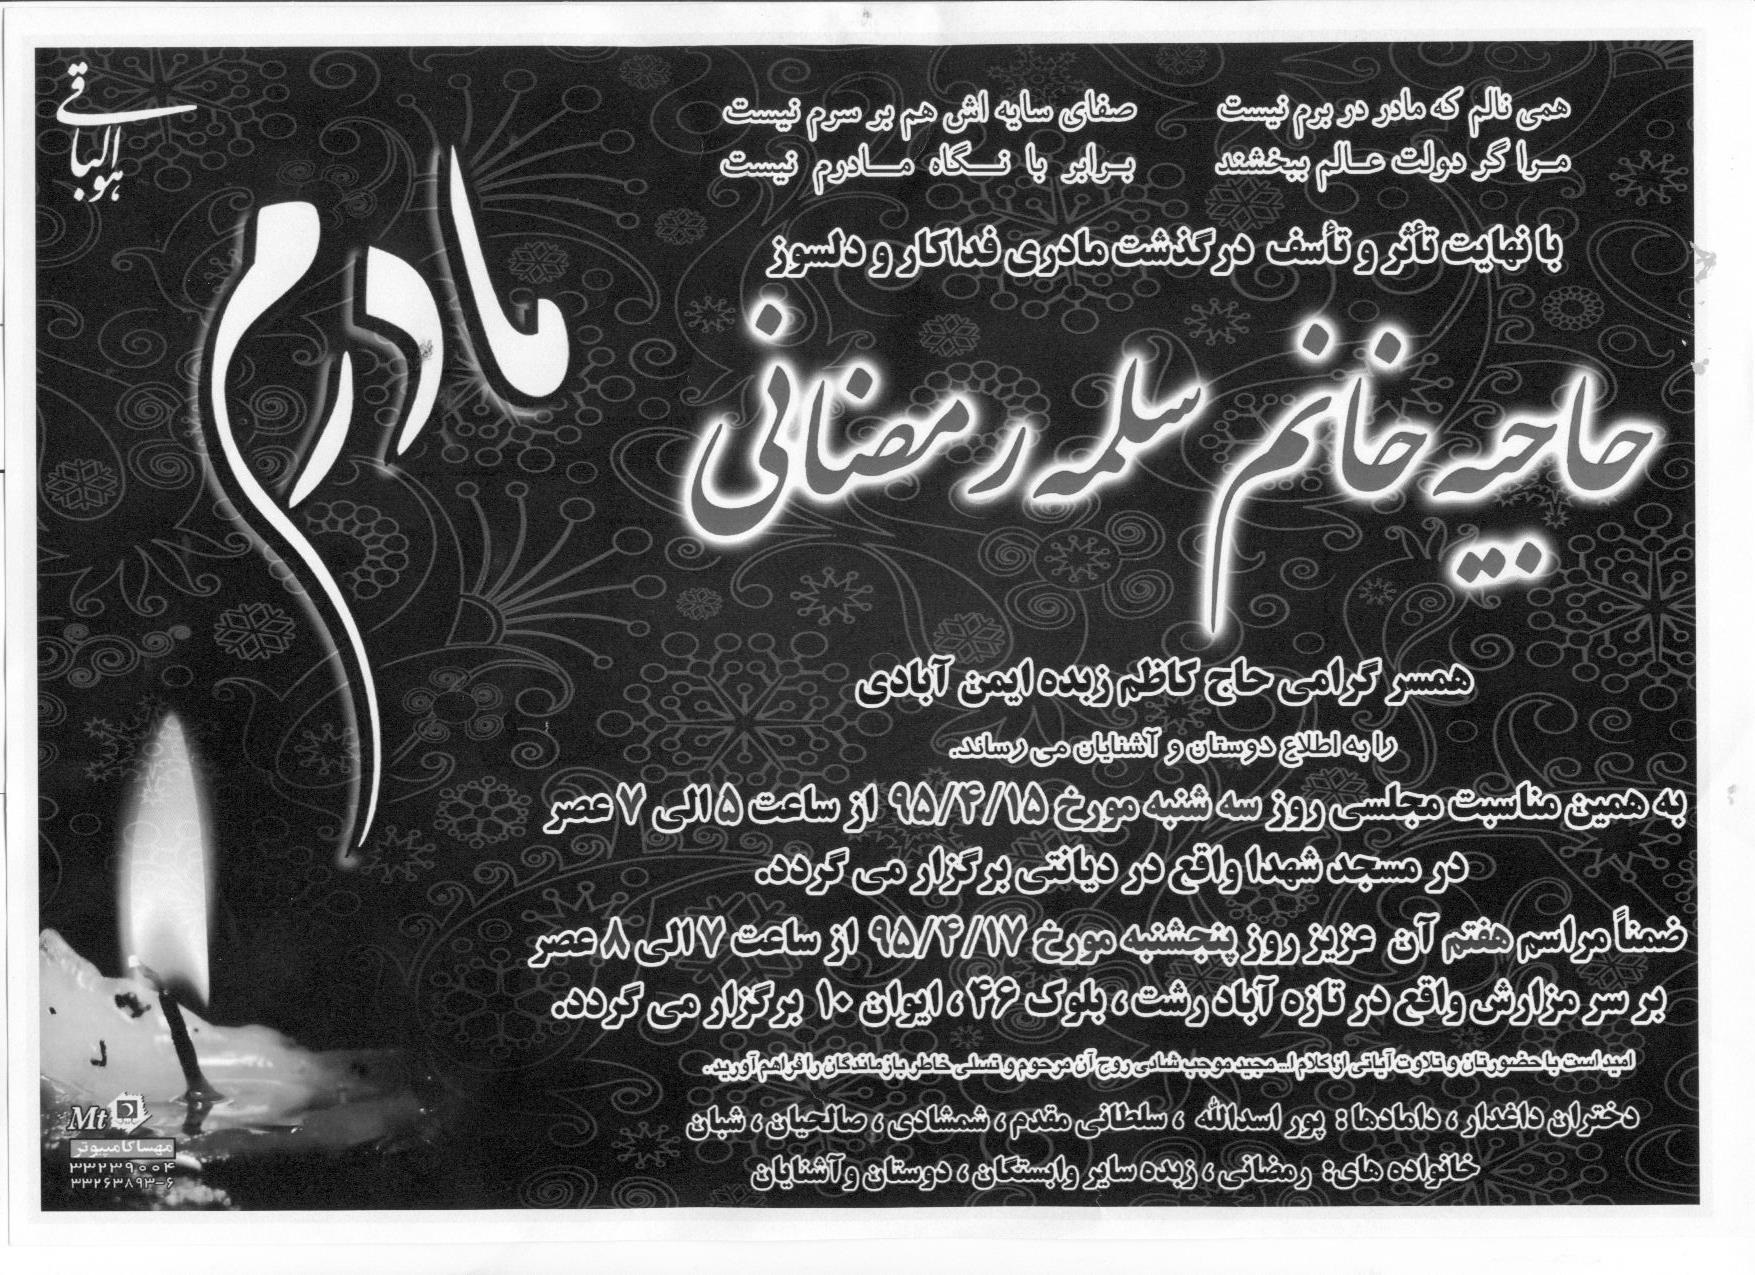 هو الباقی
همی نالم که مادر در برم نیست صفای سایه اش هم بر سرم نیست
مرا گر دولت عالم ببخشند برابر با نگاه مادرم نیست
مادرم
با نهایت تأثر و تأسف درگذشت مادری فداکار و دلسوز
حاجیه خانم سلمه رمضانی
همسر گرامی حاج کاظم زبده ایمن آبادی
را به اطلاع دوستان و آشنایان می رساند.
به همین مناسبت مجلسی روز سه شنبه مورخ ۹۵/۴/۱۵ از ساعت ۵ الی ۷ عصر
در مسجد شهدا واقع در دیانتی برگزار می گردد.
ضمناً مراسم هفتم آن عزیز روز پنجشنبه مورخ ۹۵/۴/۱۷ از ساعت ۷ الی ۸ عصر
بر سر مزارش واقع در تازه آباد رشت ، بلوک ۴۶ ، ایوان ۱۰ برگزار می گردد.
امید است با حضورتان و تلاوت آیاتی از کلام ا... مجید موجب شادی روح آن مرحوم و تسلی خاطر بازماندگان را فراهم آورید.
دختران داغدار ، دامادها : پور اسدالله ، سلطانی مقدم ، شمشادی ، صالحیان ، شبان
خانواده های: رمضانی ، زبده سایر وابستگان ، دوستان و آشنایان
Mt
مهسا کامپیوتر
۳۳۲۳۹۰۰۴
۳۳۲۶۳۸۹۳-۶